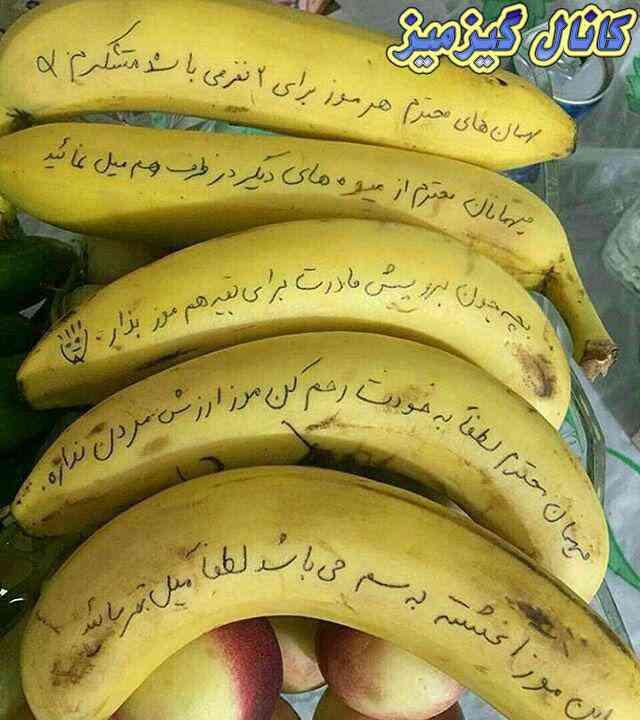 کانال گیزمیز
مهمان‌های محترم هر موز برای ۲ نفر می باشد متشکرم
میهمانان محترم از میوه های دیگر در ظرف هم میل نمائید
بچه جون برو پیش مادرت برای بقیه هم موز بذار.
میهمان محترم لطفاً به خودت رحم کن موز ارزش مردن نداره.
این موز آغشته به سم می باشد لطفاً میل نفرمائید